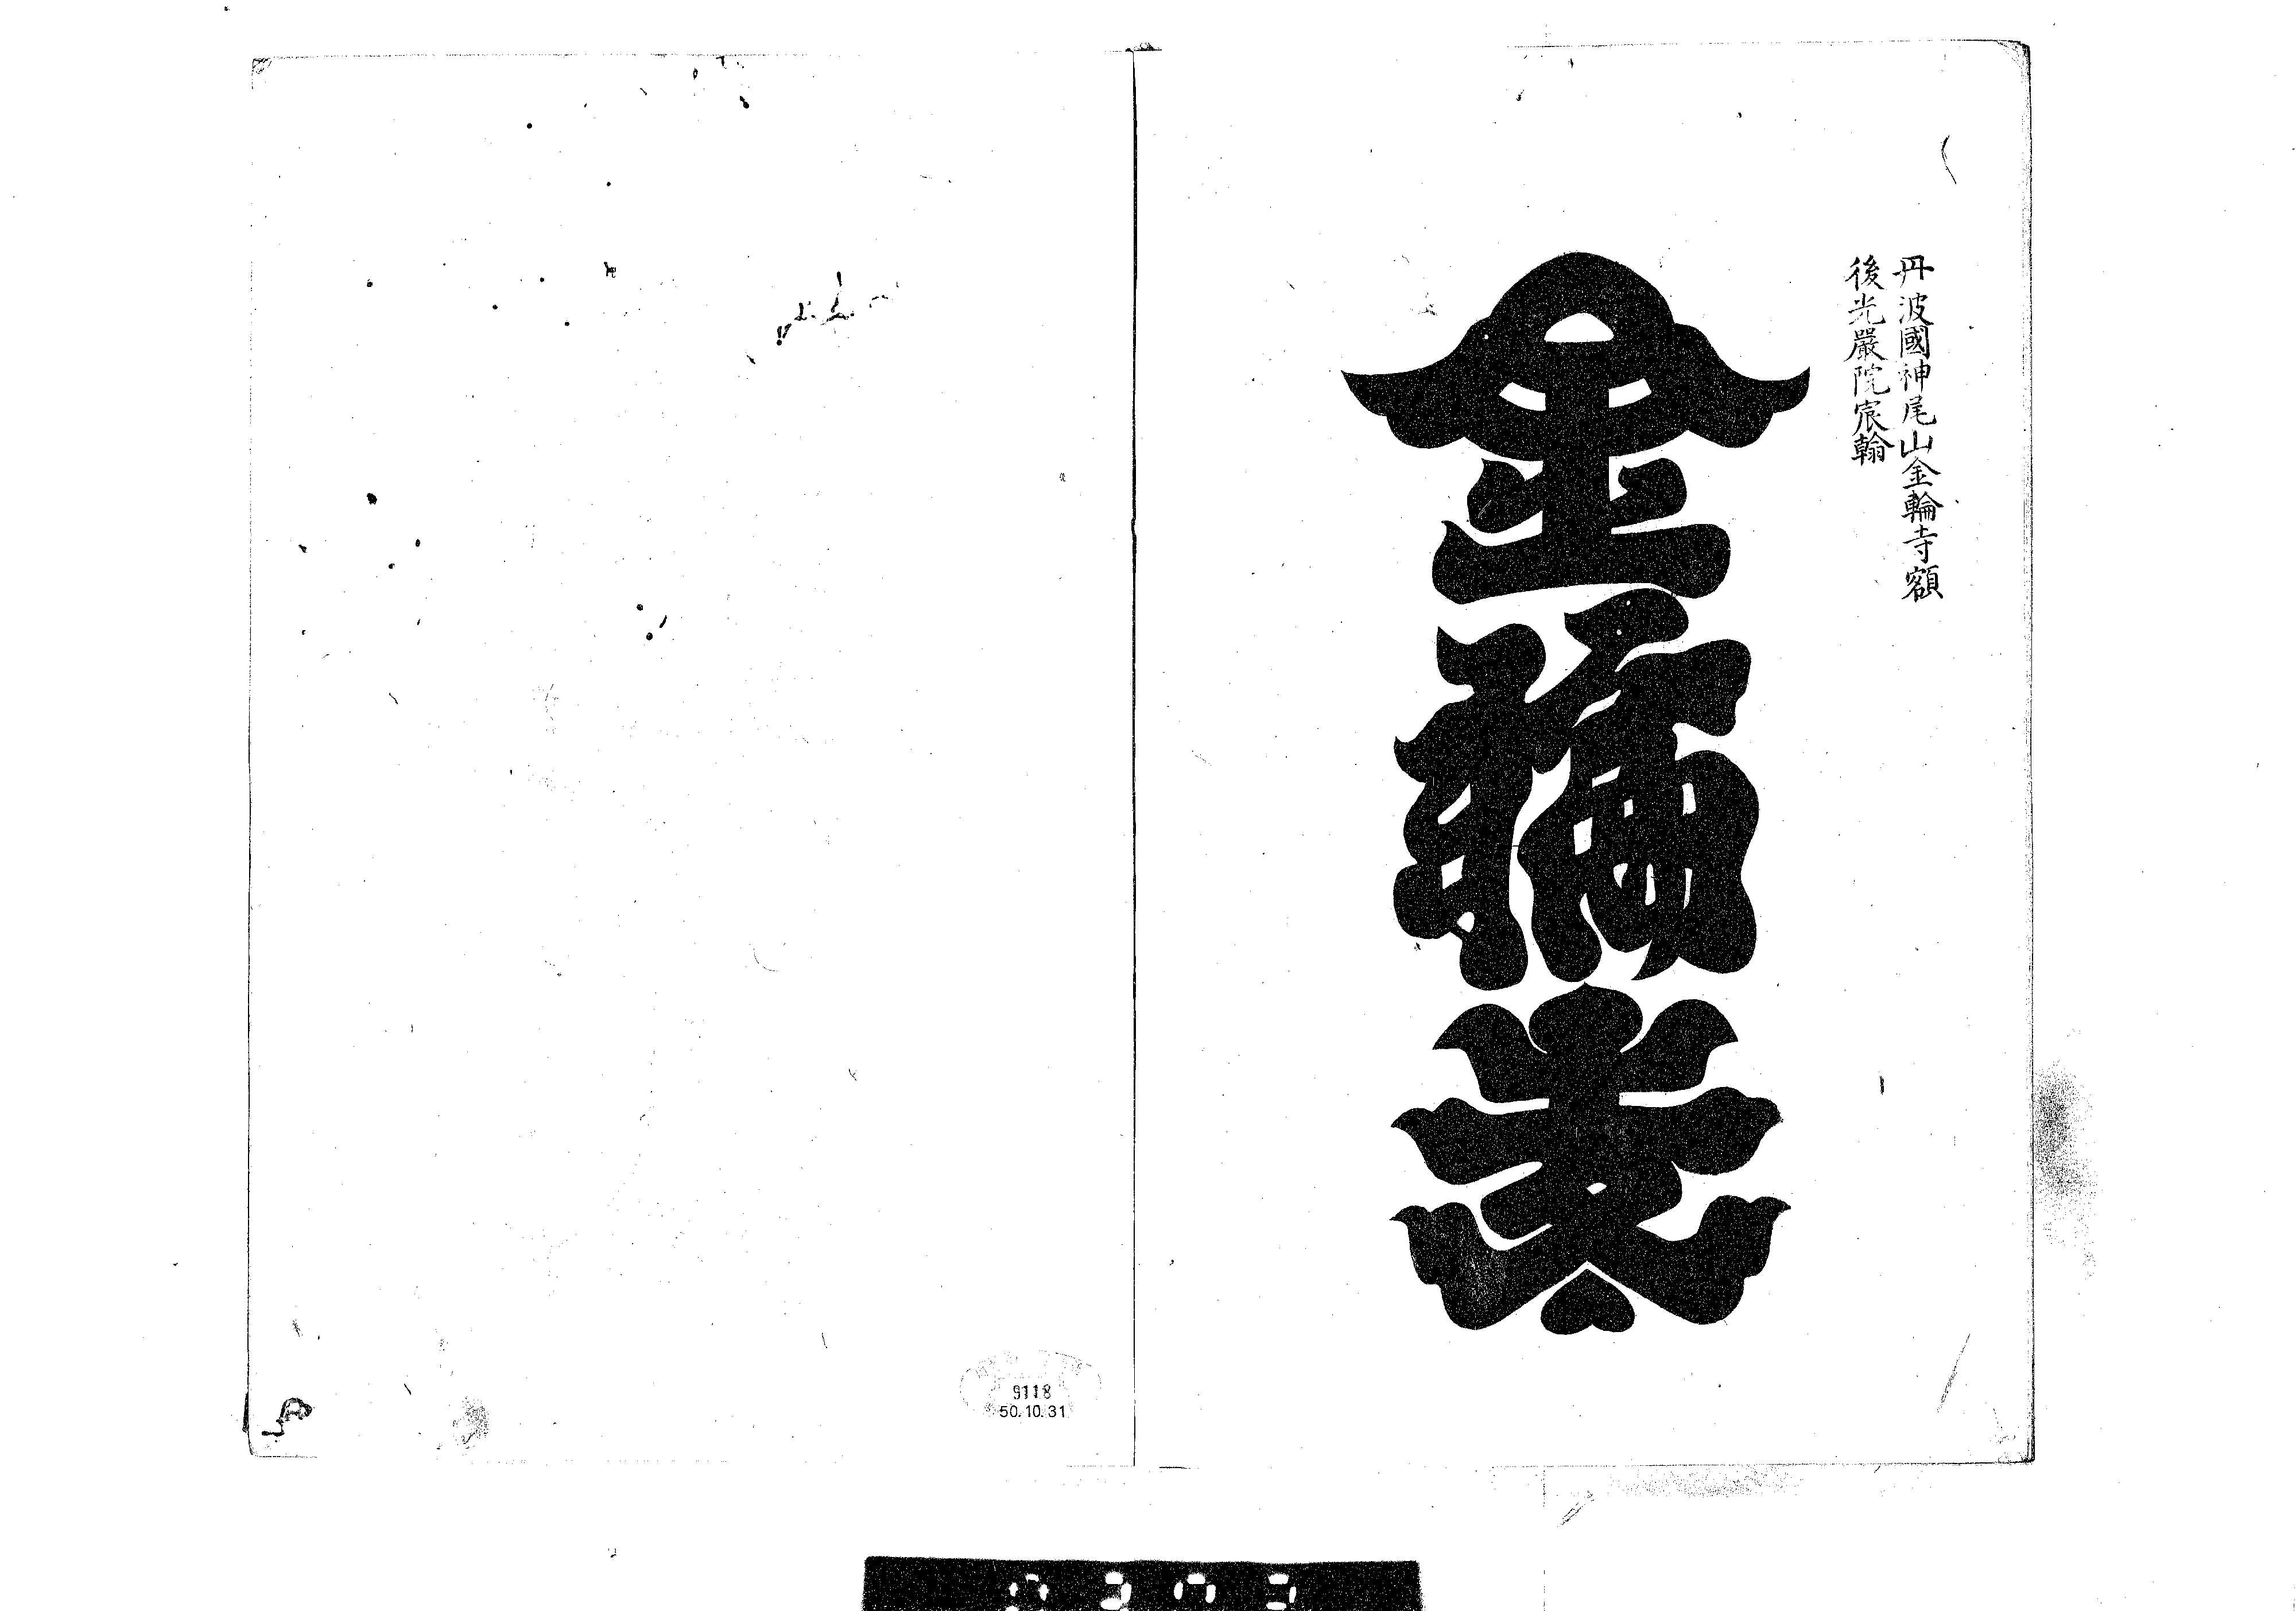 丹波國神尾山金輪寺額
後光嚴院宸翰
金輪寺
9118
50.10.31